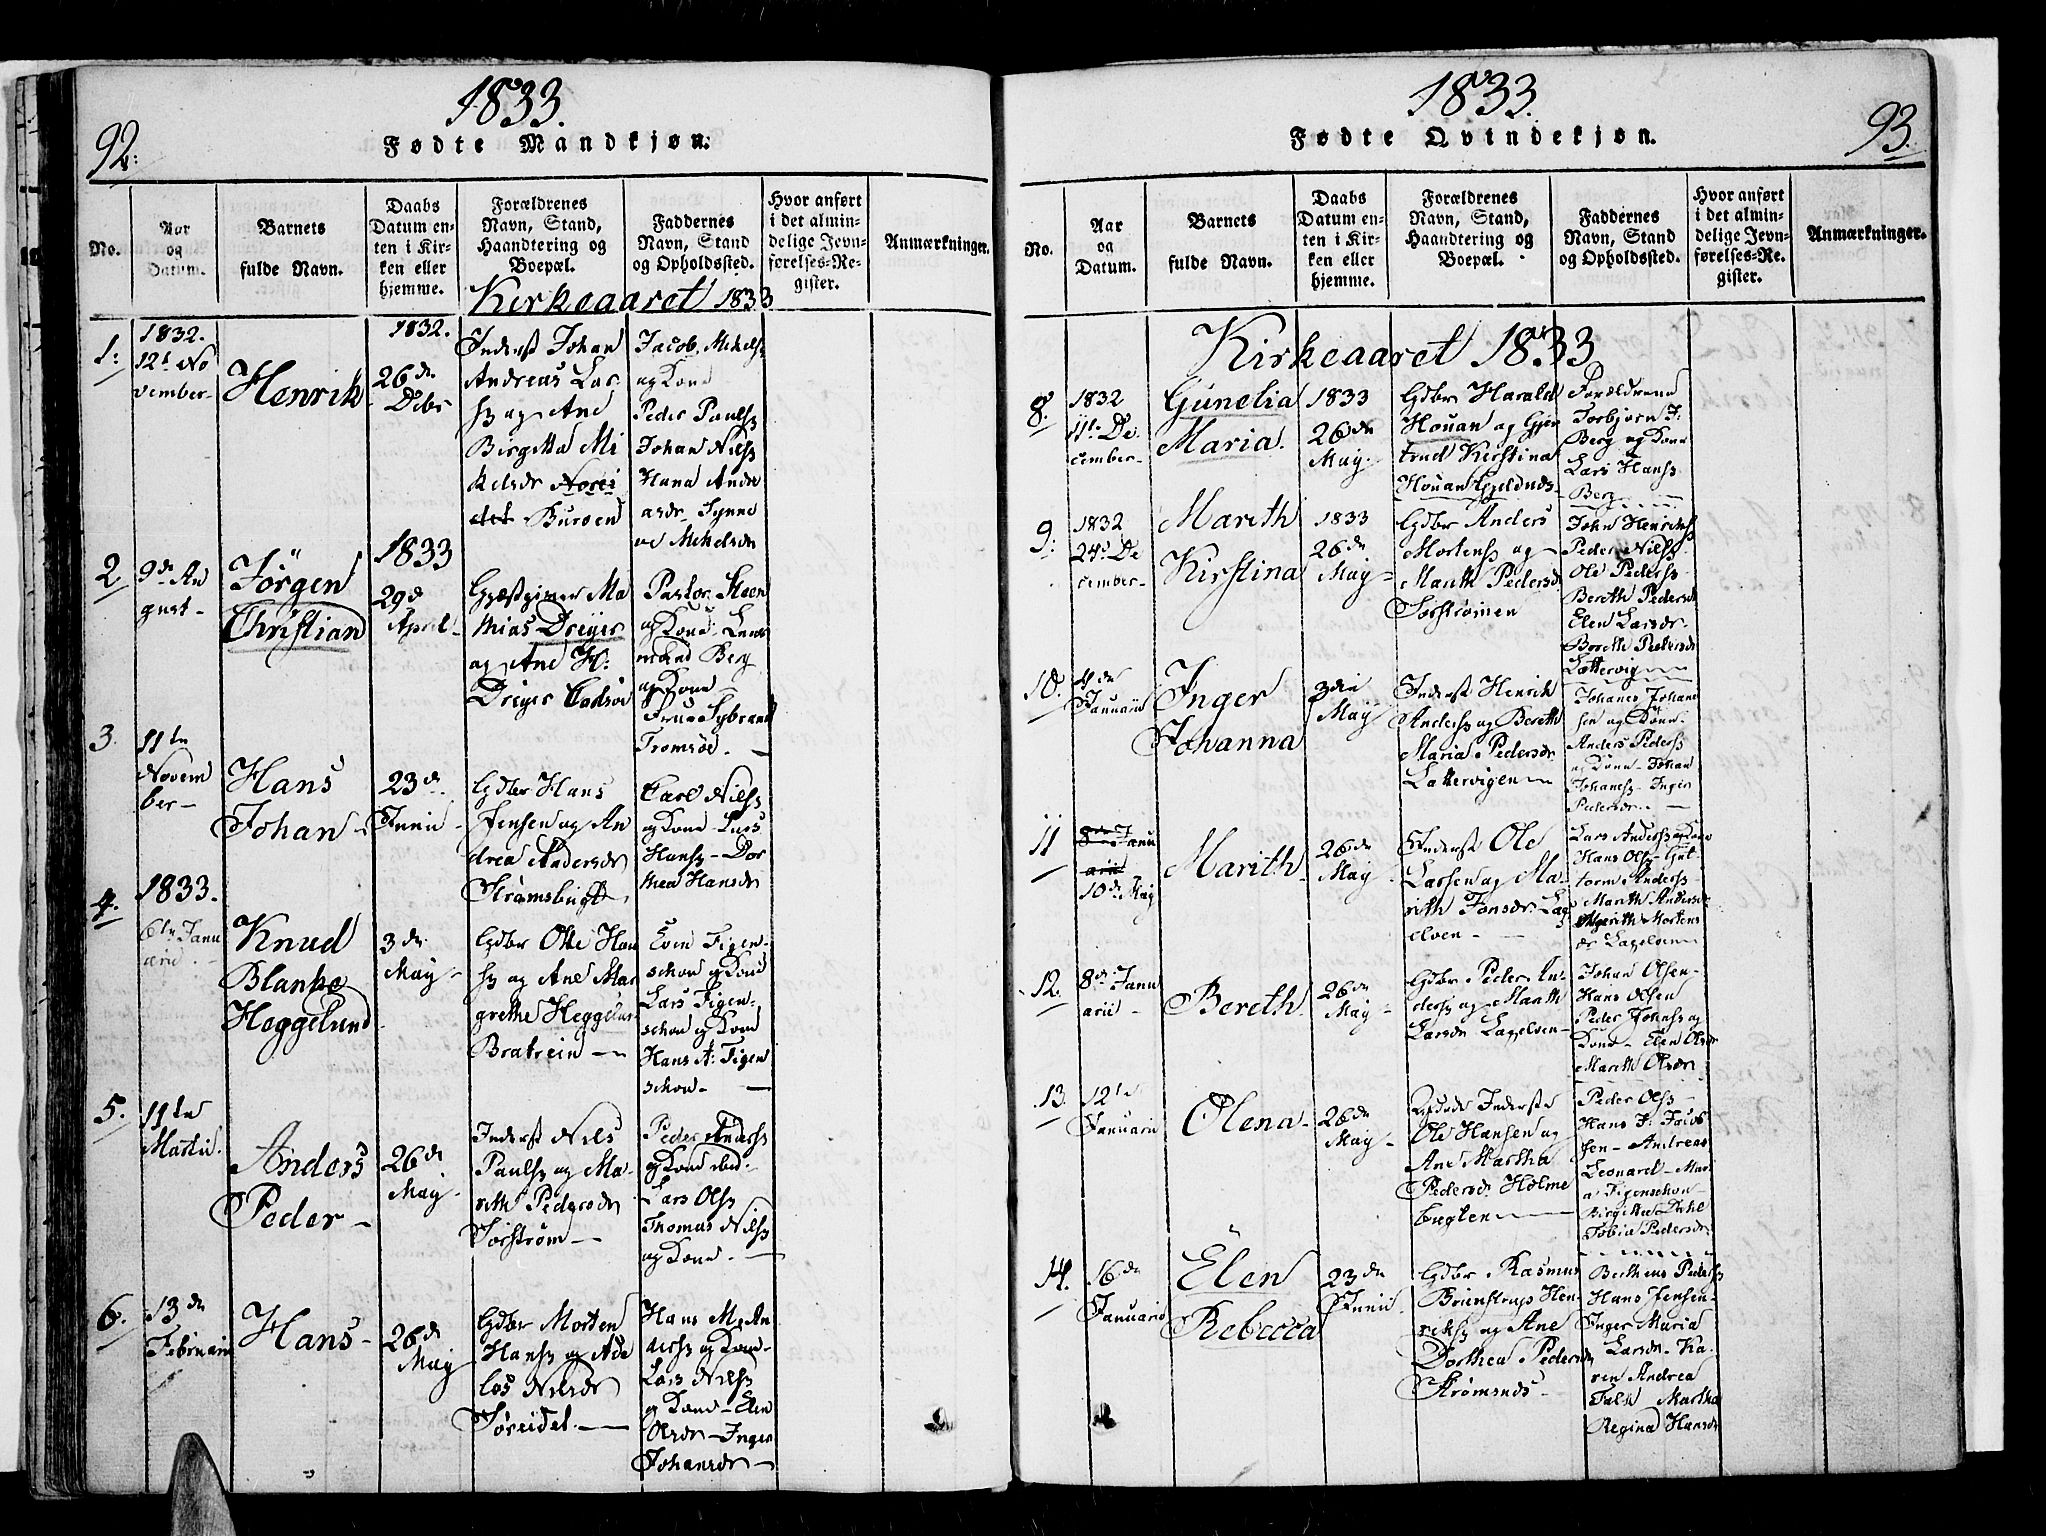 92.
1833.
Fødte Mandkjøn.
No.
Aar og Datum.
Barnets fulde Navn.
Daabs Datum enten i Kirken eller hjemme.
Forældrenes Navn, Stand, Haandtering og Boepæl.
Faddernes Navn, Stand og Opholdssted.
Hvor anført i det almindelige Jevnførelses-Register.
Anmærkninger.
Kirkeaaret 1833
1:
1832.
12t No
vember
Henrik
1832.
26de
Debr
Inderst Johan
Andreas Lar
ss og Ane
Birgitta Mi
kelsdr
Buroen
Jacob Mikels
og Kone
Peder Paulss
Johan Nilss
Hana Andre
asdr
Mikelsdr
2
9de Au
gust
Jörgen
Christian
1833
29d
April
Gjæstgiver Ma
thias Dreyer
og Ane H:
Dreyer
Pastor Steen
og Kone
mand Berg
og Kone
Tromsöe.
3.
11te
Novem
ber
Hans
Johan
23de
Junii
Gdbr Hans
Jensen og An
drea Andersdr
Strømsbugt
Carl Nilss
og Kone Lars
Hanss Dor
thea Hansdr
4.
1833.
6te Janu
arii
Knud
Blanke
Heggelund
3de
May
Gdbr Ole Han
ss og Ane Mar
grethe Heggelun
Bratrein
Even Figen
schou og Kone
Lars Figen
schou og Kone
Hans A: Figen
schou
5.
11te
Martii.
Anders
Peder
26de
May
Inderst Nils
Paulss og Ma
rith Pedersdr
Sørstrøm
Peder Anderss
og Kone ibid.
Lars Olss
Thomas Nilss
og Kone
6.
13de
Februarii
Hans
26d
May
Gdbr Morten
Hanss og Ade
los Nilsdr
Søreidet
Hans M. An
derss og Kone
Lars Nilss
og Kone Elen
Olsdr Inger
Johansdr
93.
1833.
Fødte Qvindekjøn.
No.
Aar og Datum.
Barnets fulde Navn.
Daabs Datum enten i Kirken eller hjemme.
Forældrenes Navn, Stand, Haandtering og Boepæl.
Faddernes Navn, Stand og Opholdssted.
Hvor anført i det almindelige Jevnførelses-Register.
Anmærkninger.
Kirkeaaret 1833
8.
1832
11t De
cember
Gunelia
Maria.
1833
26de
May
Gdbr Harald
Houan og Gjer
trud Kirstina
Houan
Forældrene
Torbjörn J:
Berg og Kone
Lars Hanss
Berg
9:
1832
24d De
cember
Marith
Kirstina
1833
26de
May
Gdbr Anders
Mortenss og
Marith Pedersd
Sørstrømen
John Henrikss
Peder Nilss
Ole Pederss
Bereth Pedersd
Elen Larsdr
Berethe Pedersdr
Lattervig
10.
4de
Januarii
Inger
Johanna
3die
May
Inderst Henrik
Anderss og Bereth
Maria Pedersdr
Lattervigen
Johanes Johan
sen og Kone
Anders Pederss
og Kone Johan
Johaness Inger
Pedersdr
11
8de Janu
arii
10de May
Marith
26de
May
Inderst Ole
Larsen og Ma
rith Jonsdr Lag
elven
Lars Anderss og Kone
Hans Olss Gut
torm Anderss
Marith Andersdr
Marith Mortens
dr Lagelven
12.
8de Janu
arii
Bereth
26de
May
Gdbr Peder An
derss og Marith
Larsdr Lagelven
Johan Olsen
Hans Olsen
Peder Johnss og
Kone Elen Olsdr
Marith Olsdr
13.
12te
Januarii
Olena
26de
May
Inderste
Ole Hansen og
Ane Martha
Pedersdr Holme
bugten
Peder Olss
Hans J: Jacob
sen Andreas
Leonard Mari
a Figenschou
Birgitta Dahl
Tobia Pedersdr
14.
16de
Januarii
Elen
Rebecca
23de
Junii
Gdbr Rasmus
Brinstrup Hen
rikss og Ane
Dorthea Pedersdr
Strømsnes
Betheus Pederss
Hans Jensen
Inger Maria
Larsdr Ka
ren Andrea
Falk Martha
Regina Hansdr